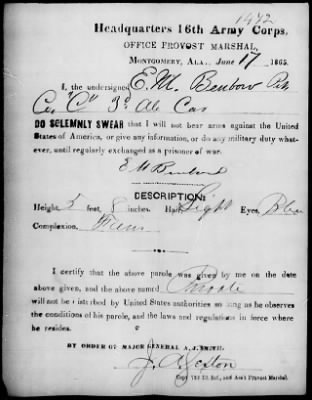 1472
Headquarters 16th Army Corps,
OFFICE PROVOST MARSHAL,
MONTGOMERY, ALA., June 17 1865.
I, the undersigned E. M. Benbow Pvt
Co "C" 3d Ala Cav
DO SOLEMNLY SWEAR that I will not bear arms against the United
States of America, or give any information, or do any military duty whatever,
until regularly exchanged as a prisoner of war.
E M Benbow
DESCRIPTION:
Height, 5 feet, 8 inches. Hair, Light Eyes, Blue
Complexion,
I certify that the above parole was given by me on the date
above given, and the above named Private
will not be disturbed by United States authorities so long as he observes
the conditions of his parole, and the laws and regulations in force where
he resides.
BY ORDER OF MAJOR GENERAL A. J. SMITH.
J. A. Sexton
Capt 72d Ill. Inf., and Ass't Provost Marshal.